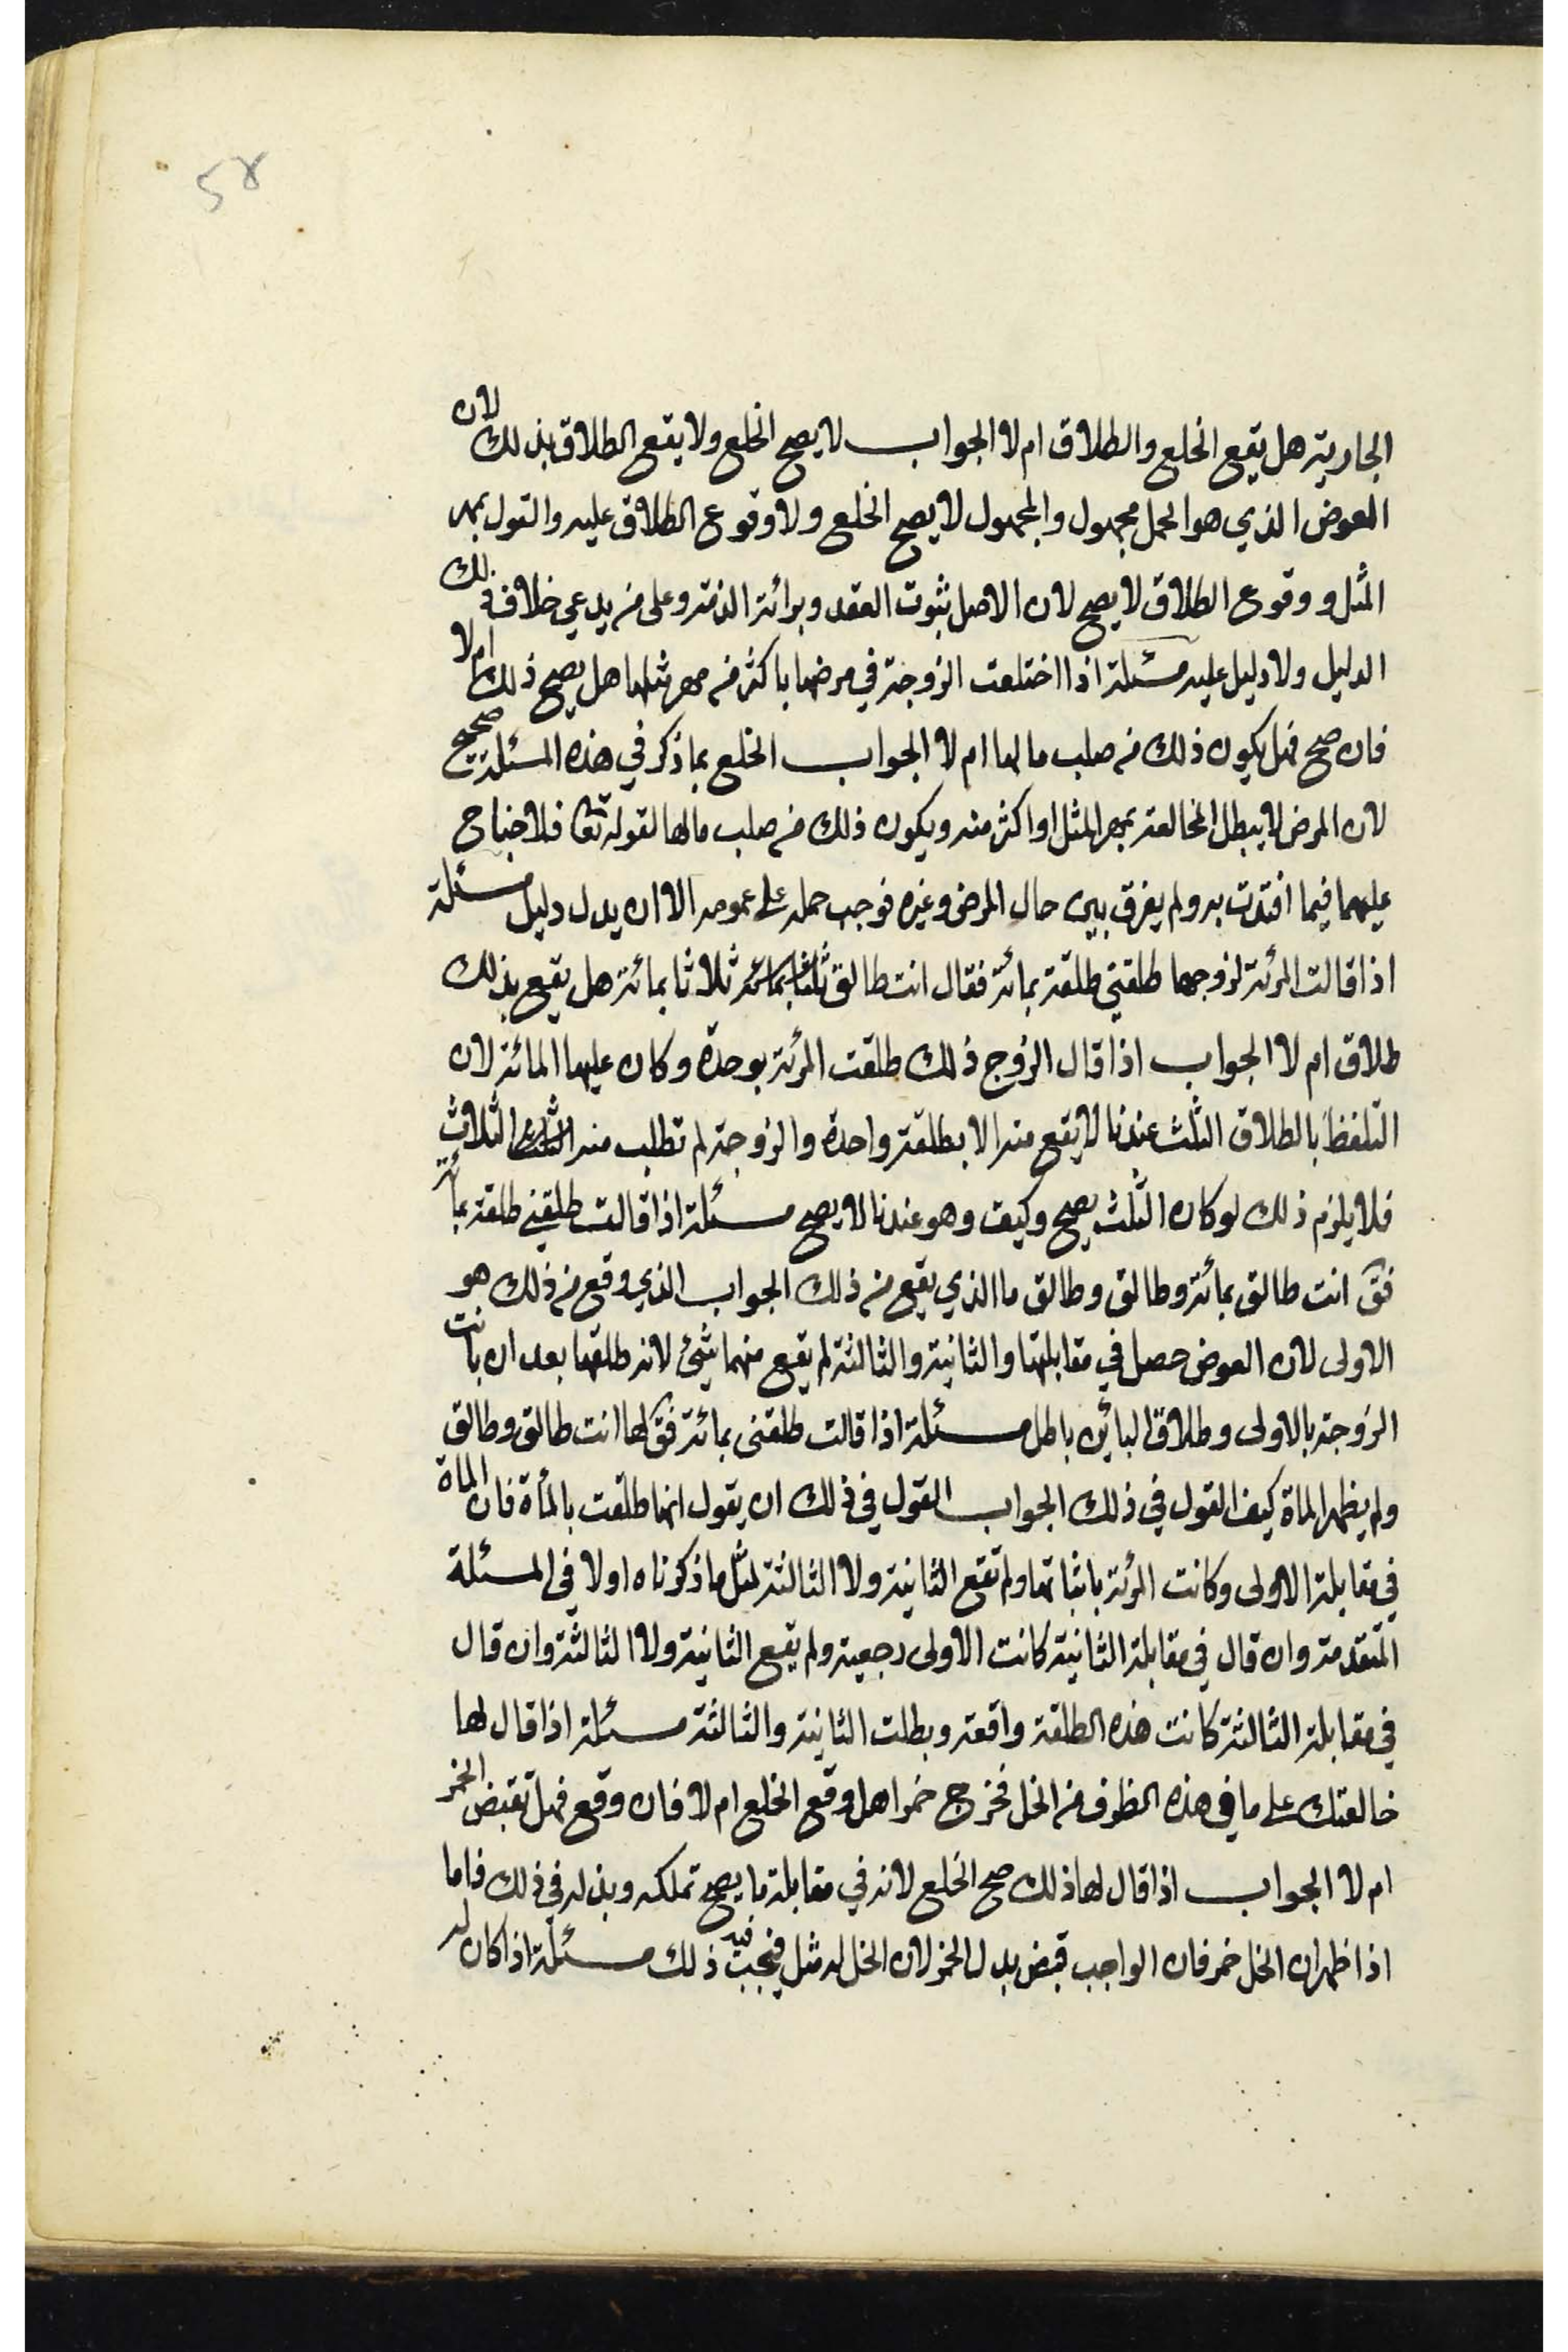 58
الجارية هل يقع الخلع والطلاق ام لا الجواب لا يصح الخلع ولا يقع الطلاق بذلك لان
العوض الذي هو الحمل مجهول والمجهول لا يصح الخلع ولا وقوع الطلاق عليه والقول بمهر
المثل ووقوع الطلاق لا يصح لان الاصل ثبوت العقد وبرائة الذمة وعلى من يدعي خلاف ذلك
الدليل ولا دليل عليه مسئلة اذا اختلعت الزوجة في مرضها باكثر من مهر مثلها هل يصح ذلك ام لا
فان صح فهل يكون ذلك من صلب مالها ام لا الجواب الخلع بما ذكر في هذه المسئلة صحيح
لان المرض لا يبطل المخالعة بمهر المثل او اكثر منه ويكون ذلك من صلب مالها لقوله تعا فلا جناح
عليهما فيما افتدت به ولم يفرق بين حال المرض وغيره فوجب حمله على عمومه الا ان يدل دليل مسئلة
اذا قالت المرئة لزوجها طلقني طلقة بمائة فقال انت طالق ثلثا بمائة ثلاثا بمائة هل يقع بذلك
طلاق ام لا الجواب اذا قال الزوج ذلك طلقت المرئة بوحدة وكان عليها المائة لان
التلفظ بالطلاق الثلث عندنا لا يقع منه الا بطلقة واحدة والزوجة لم تطلب منه الثلث الثلاث
فلا يلزم ذلك لو كان الثلث يصح وكيف وهو عندنا لا يصح مسئلة اذا قالت طلقني طلقة بمائة
فق انت طالق بمائة وطالق وطالق ما الذي يقع من ذلك الجواب الذي وقع من ذلك هو
الاولى لان العوض حصل في مقابلتها والثانية والثالثة لم يقع منهما شيئ لانه طلقها بعد ان بانت
الزوجة بالاولى وطلاق البائن باطل مسئلة اذا قالت طلقنى بمائة فق لها انت طالق وطالق
ولم يظهر الماة كيف القول في ذلك الجواب القول في ذلك ان يقول انها طلقت بالمأة فان الماة
في مقابلة الاولى وكانت المرئة باثباتها ولم تقع الثانية ولا الثالثة لمثل ما ذكرناه اولا في المسئلة
المتقدمة وان قال في مقابلة الثانية كانت الاولى رجعية ولم يقع الثانية ولا الثالثة وان قال
في مقابلة الثالثة كانت هذه الطلقة واقعة وبطلت الثانية والثالثة مسئلة اذا قال لها
خالعتك على ما في هذه الظرف من الخل فخرج خمرا هل وقع الخلع ام لا فان وقع فهل تقبض الخمر
ام لا الجواب اذا قال لها ذلك صح الخلع لانه في مقابلة ما يصح تملكه وبذله في ذلك فاما
اذا ظهر ان الخل خمر فان الواجب قبض بدل الخمر لان الخل له مثل فيجب فيه ذلك مسئلة اذا كان له